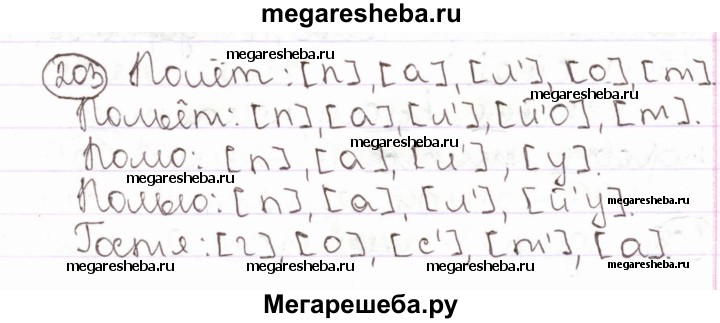 megaresheba.ru
megaresheba.ru
203 Полёт: [п], [а], [л'], [о], [т].
megaresheba.ru
Польёт: [п], [а], [л'], [й'о], [т].
megaresheba.ru
Полю: [п], [а], [л'], [у].
megaresheba.ru
Полью: [п], [а], [л'], [й'у].
megaresheba.ru
Гостя: [г], [о], [с'], [т'], [а].
megaresheba.ru megaresheba.ru
Мегарешеба.ру